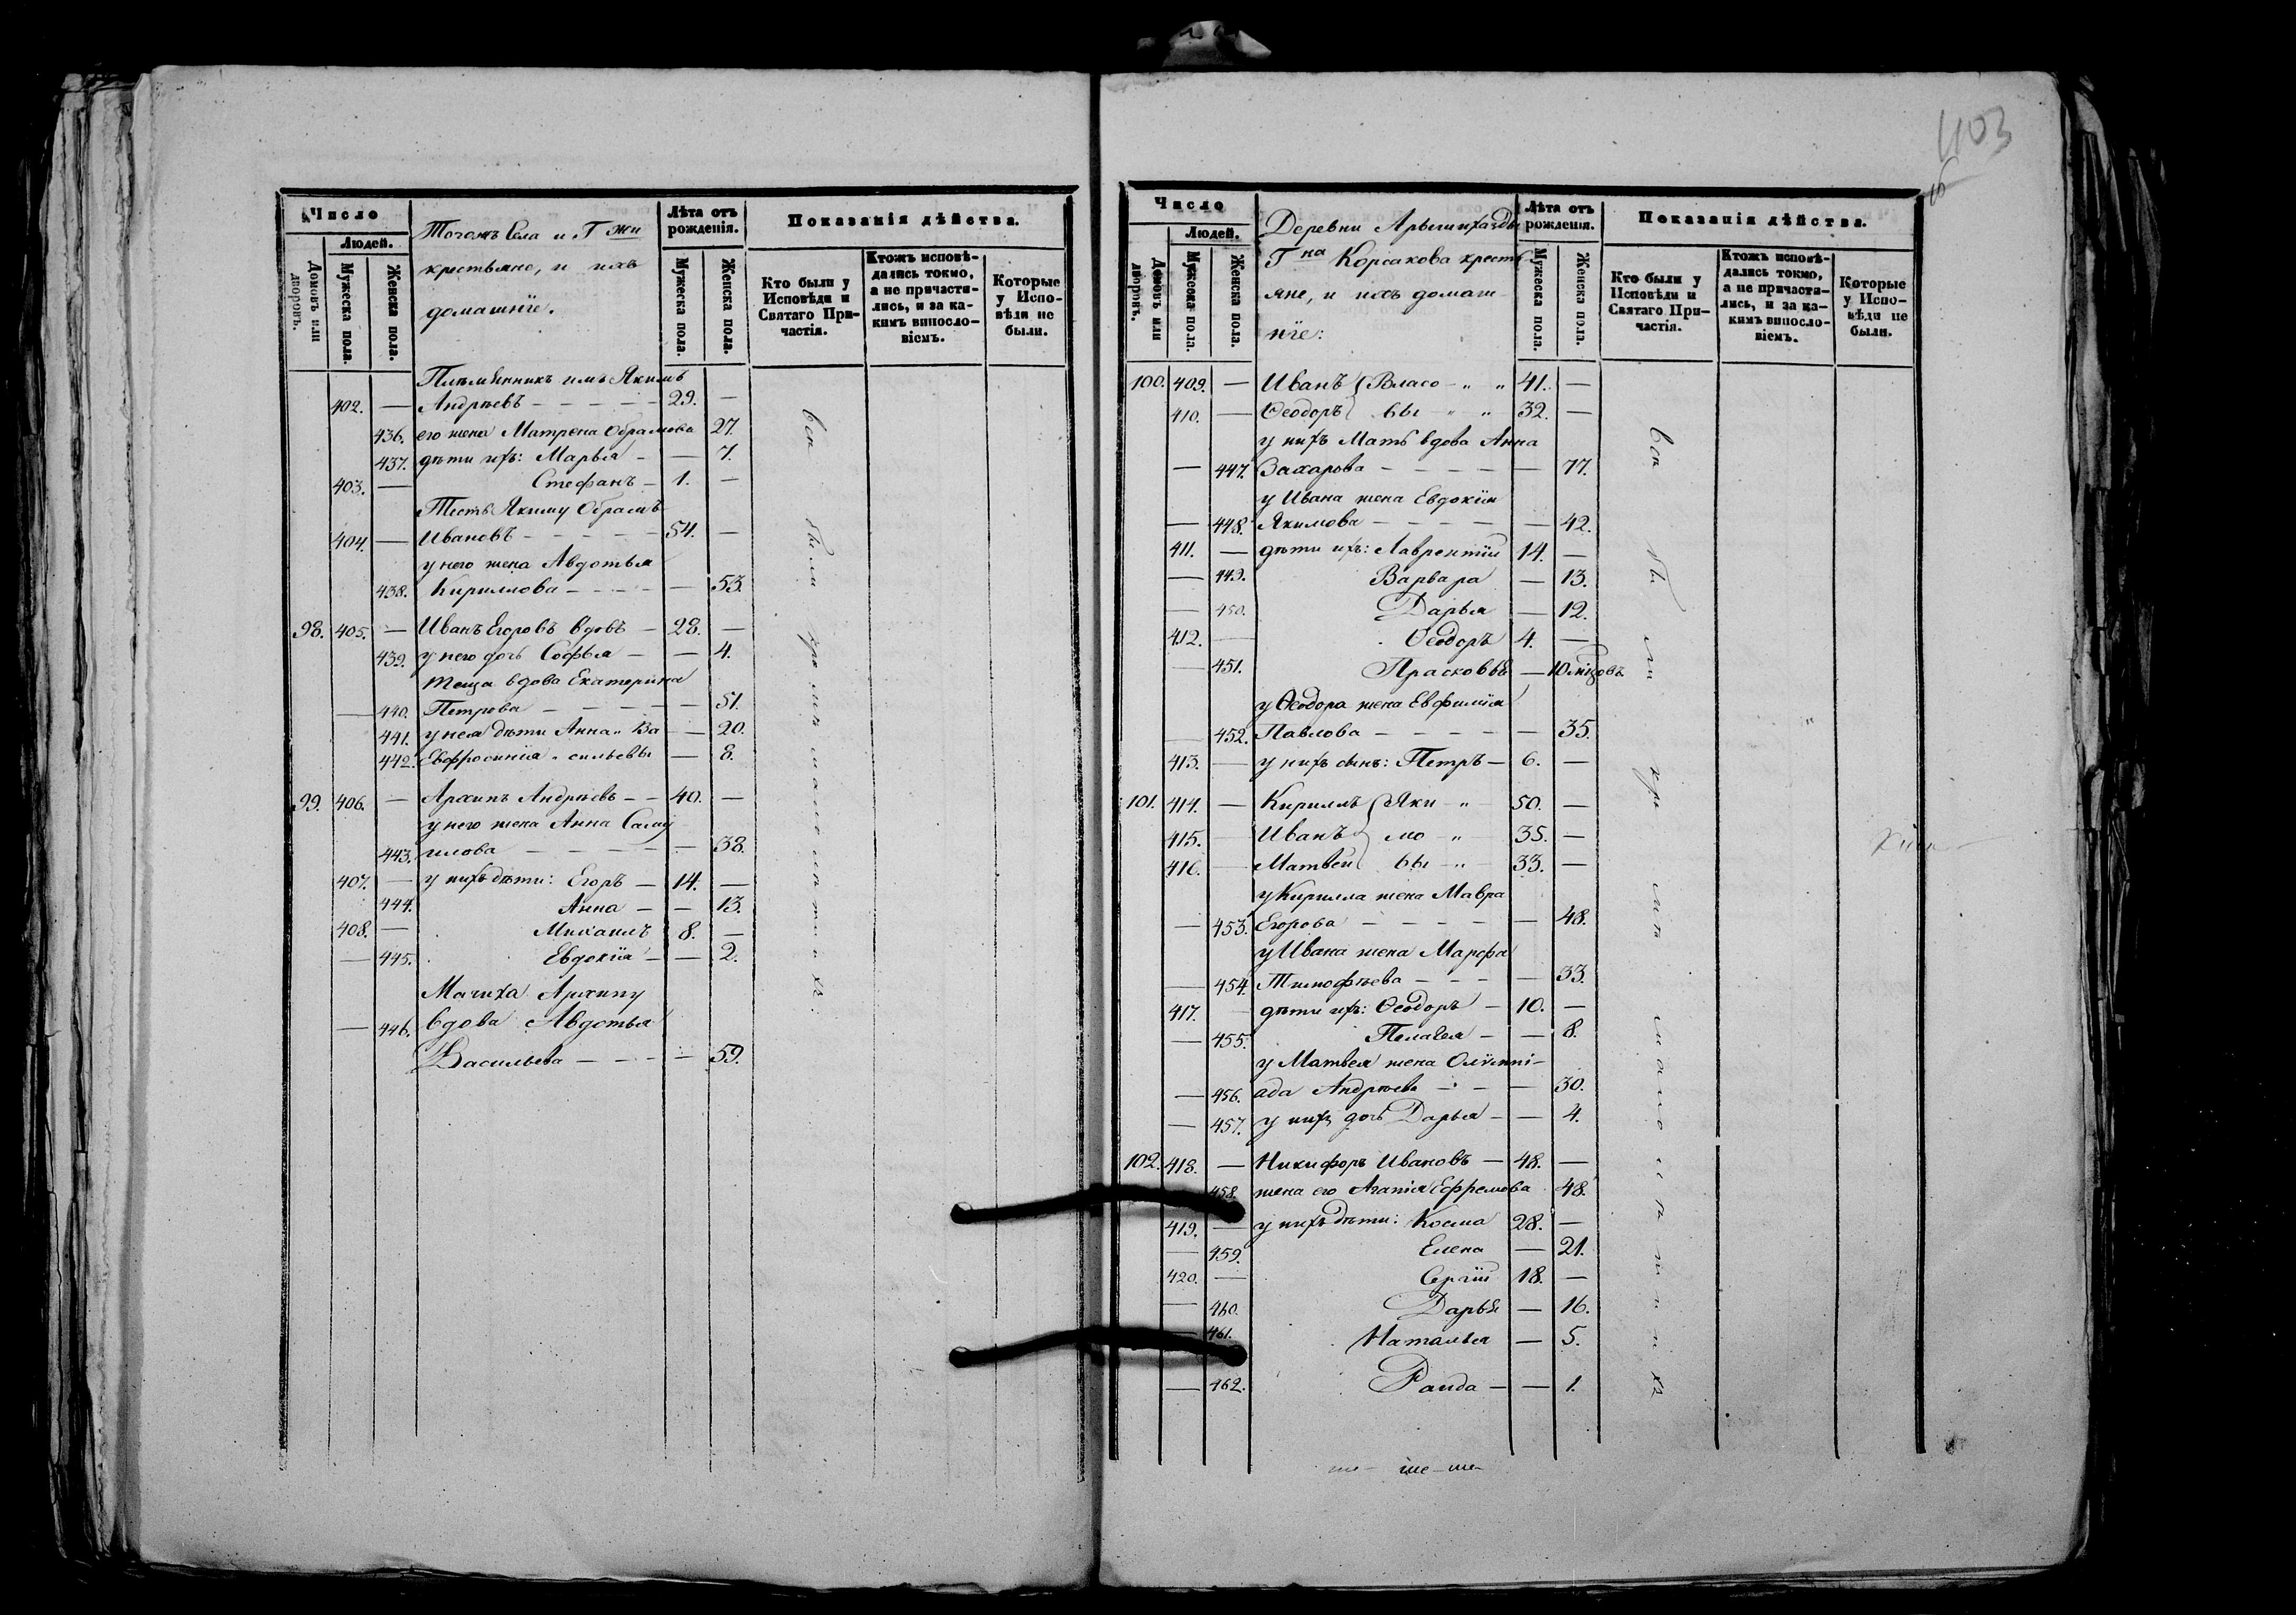 Число
Людей.
Домовъ или дворовъ.
Мужеска пола.
Женска пола.
Тогожъ Села и Г жи
крестьяне, и ихъ
домашнїе.
Лѣта отъ рожденія.
Мужеска пола.
Женска пола.
Показанія дѣйства.
Кто были у Исповѣди и Святаго Причастія.
Ктожъ исповѣдались токмо, а не причастились, и за какимъ винословіемъ.
Которые у Исповѣди не были.
Племянникъ имъ Якимъ
402. — Андрѣевъ — 29. —
436. его жена Матрена Обрамова 27.
437. дѣти ихъ: Марья — — 7.
403. — Стефанъ — 1. —
Тесть Якиму Обрамъ
404. — Ивановъ — 54. —
у него жена Авдотья
438. Кириллова — — 53.
98. 405. — Иванъ Егоровъ вдовъ — 28. —
439. у него дочь Софья — — 4.
теща вдова Екатерина
— 440. Петрова — — 51.
441. у нея дѣти Анна „ Ва — 20.
442. Евфросинія „ сильевы — 8.
99. 406. — Архипъ Андрѣевъ — 40. —
у него жена Анна Саму
443. илова — — 38.
407. — у нихъ дѣти: Егоръ — 14. —
444. Анна — — 13.
408. — Михаилъ 8. —
— 445. Евдокїя — — 2.
Мачиха Архипу
— 446. вдова Авдотья
Васильева — — 59.
всѣ были кромѣ малолѣтнихъ
403
Число
Людей.
Домовъ или дворовъ.
Мужеска пола.
Женска пола.
Деревни
Г на Корсакова кресть
яне, и ихъ домаш
нїе:
Лѣта отъ рожденія.
Мужеска пола.
Женска пола.
Показанія дѣйства.
Кто были у Исповѣди и Святаго Причастія.
Ктожъ исповѣдались токмо, а не причастились, и за какимъ винословіемъ.
Которые у Исповѣди не были.
100. 409. — Иванъ { Власо „ „ 41. —
410. — Ѳеодоръ { вы „ „ 32. —
у нихъ Мать вдова Анна
— 447. Захарова — — 77.
у Ивана жена Евдокїя
— 448. Якимова — — 42.
411. — дѣти ихъ: Лаврентїй 14. —
— 449. Варвара — 13.
— 450. Дарья — 12.
412. — Ѳеодоръ 4. —
— 451. Прасковья —
у Ѳеодора жена Евфимїя
— 452. Павлова — — 35.
413. — у нихъ сынъ: Петръ — 6. —
101. 414. — Кириллъ { Яки „ 50. —
415. Иванъ } мо „ 35. —
416. Матвей { вы „ 33. —
у Кирилла жена Мавра
— 453. Егорова — — 48.
у Ивана жена Марфа
— 454. Тимофѣева — — 33.
417. дѣти ихъ: Ѳеодоръ — 10. —
— 455. Пелагея — — 8.
у Матвея жена Олимпі-
— 456. ада Андрѣева — — 30.
— 457. у нихъ дочь Дарья — — 4.
102. 418. — Никифоръ Ивановъ — 48. —
458. жена его Агапія Ефремова 48.
419. — у нихъ дѣти: Косма 28. —
— 459. Елена — 21.
420. — Сергїй 18. —
— 460. Дарья — 16.
— 461. Наталья — 5.
— 462. Раида — — 1.
всѣ были кромѣ малолѣтнихъ
ше — ше — ше